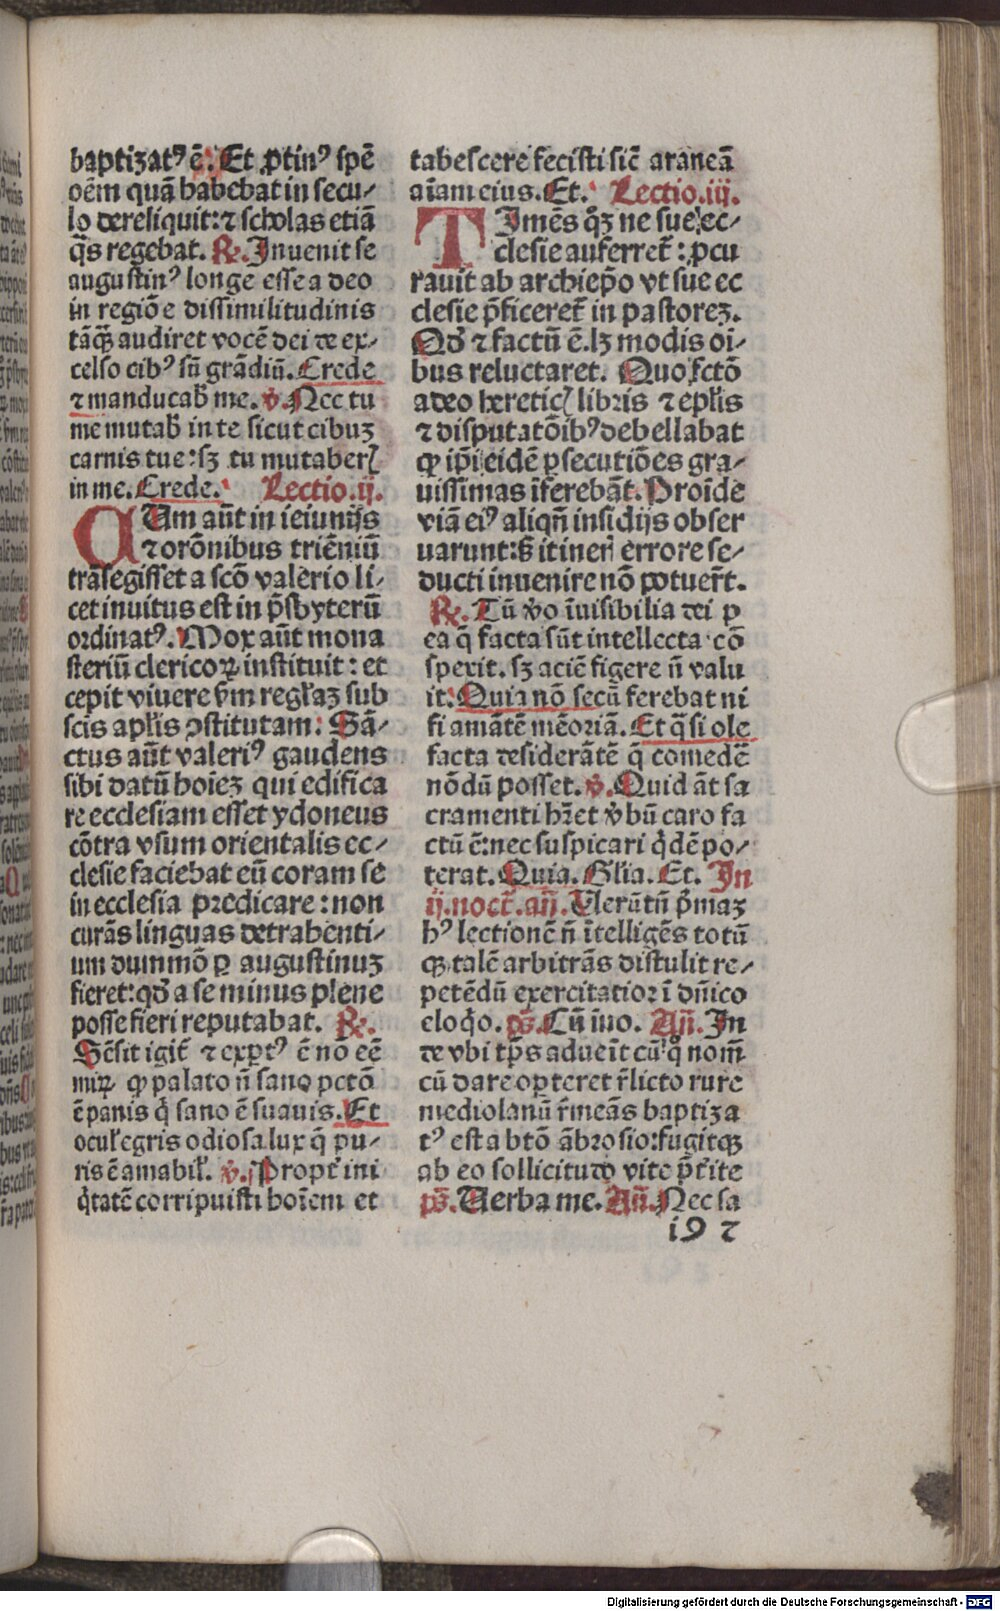 baptizatꝰ ē. Et ꝓtinꝰ spē
oēm quā habebat in secu-
lo dereliquit: ⁊ scholas etiā
q̄s regebat. ℟. Inuenit se
augustinꝰ longe esse a deo
in regiōe dissimilitudinis
tāqꝫ audiret vocē dei de ex-
celso cibꝰ sū grādiū. Crede
⁊ manducab̄ me. ℣. Nec tu
me mutab̄ in te sicut cibuꝫ
carnis tue: sꝫ tu mutaberꝭ
in me. Crede. Lectio .ij.
CUm aūt in ieiunijs
⁊ orōnibus triēniū
trāsegisset a scō valerio li-
cet inuitus est in p̄sbyterū
ordinatꝰ. Mox aūt mona
steriū clericoꝝ instituit: et
cepit viuere ẜm regl̄aꝫ sub
scis apl̄is ꝯstitutam: Sā-
ctus aūt valeriꝰ gaudens
sibi datū hoieꝫ qui edifica
re ecclesiam esset ydoneus
cōtra vsum orientalis ec-
clesie faciebat eū coram se
in ecclesia predicare: non
curās linguas detrahenti-
um dummō ꝑ augustinuꝫ
fieret: qd̄ a se minus plene
posse fieri reputabat. ℟.
Sēsit igit̄ ⁊ exꝑtꝰ ē nō eē
miꝝ ꝙ palato n̄ sano pctō
ē panis q̄ sano ē suauis. Et
ocul̄ egris odiosa lux q̄ pu-
ris ē amabil̄. ℣. Propt̄ ini
q̄tatē corripuisti hoīem et
tabescere fecisti sic̄ araneā
aīam eius. Et. Lectio .iij.
TImēs qꝫ ne sue ec-
clesie auferret̄: ꝓcu
rauit ab archiep̄o vt sue ec
clesie p̄ficeret̄ in pastoreꝫ.
Qd̄ ⁊ factū ē. lꝫ modis oī-
bus reluctaret. Quo fctō
adeo hereticꝭ libris ⁊ epl̄is
⁊ disputatōibꝰ debellabat
ꝙ ip̄i eidē ꝑsecutiōes gra-
uissimas īferebāt. Proīde
viā eiꝰ aliqn̄ insidijs obser
uarunt: sꝫ itineris errore se-
ducti inuenire nō potuer̄t.
℟. Tū v̄o īuisibilia dei ꝑ
ea q̄ facta sūt intellecta cō
spexit. sꝫ aciē figere n̄ valu
it: Quia nō secū ferebat ni
fi amātē mēoriā. Et q̄si ole
facta desiderātē q̄ comedē
nōdū posset. ℣. Quid āt sa
cramenti hr̄et v̄bū caro fa
ctū ē: nec suspicari q̄dē po-
terat. Quia. Gl̄ia. Et. In
ij. noct̄. an̄. Uerūtn̄ p̄maꝫ
hꝰ lectionē n̄ ītelligēs totū
qꝫ talē arbitrās distulit re-
petēdū exercitatior ī dn̄ico
eloq̄o. ps̄. Cū īuo. An̄. In
de vbi tp̄s aduēit cū q̄ nom̄
cū dare oꝑteret r̄licto rure
mediolanū r̄meās baptiza
tꝰ est a btō ābrosio: fugitqꝫ
ab eo sollicitudo vite p̄t̄ite
ps̄. Uerba me. An̄. Nec sa
i 9 ⁊
Digitalisierung gefördert durch die Deutsche Forschungsgemeinschaft - DFG